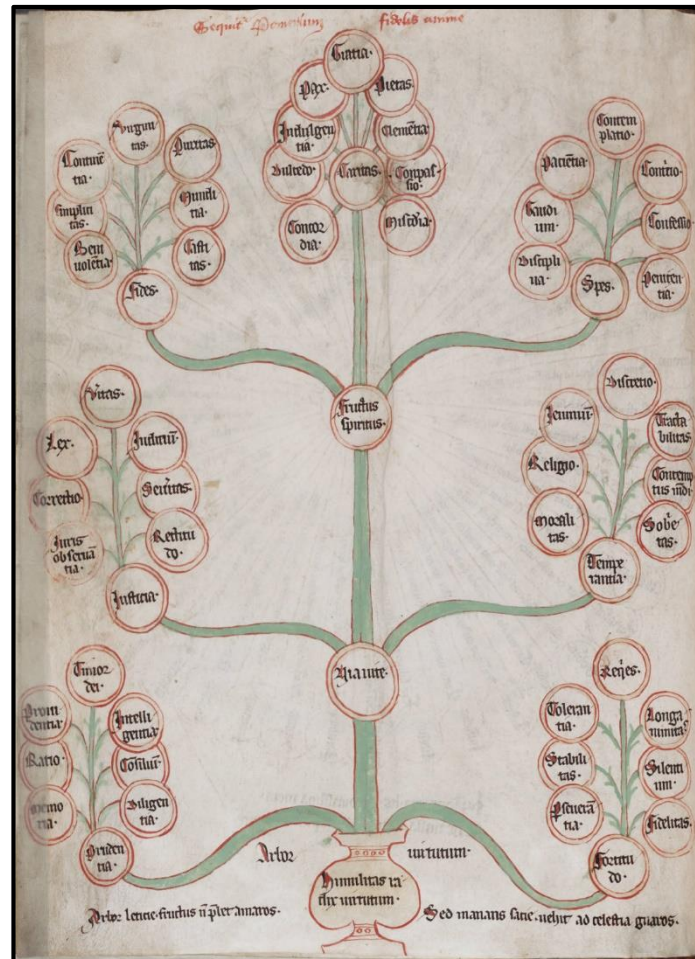 Sequit᷑ Remedium fidelis anime
Gratia.
Pax.
Pietas.
Indulgen
tia.
Clemētia.
Dulcedo.
Caritas.
Conpas
sio.
Concor
dia.
Mis͛cdia.
Virgini
tas.
Continē
tia.
Puritas.
Simplici
tas.
Mundi
tia.
Beni
uolētia.
Casti
tas.
Fides.
Contem
platio.
Paciētia.
Gaudi
um.
Confessio.
Discipli
na.
Peniten
tia.
Spes.
Fructus
spiritus.
Lex.
Iudiciū.
Correctio.
Seu͛itas.
Iuris
obseruā
tia.
Rectitu
do.
Iusticia.
Discretio.
Ieiuniū.
Tracta
bilitas.
Religio.
Contemp
tus mūdi.
Morali
tas.
Sob͛e
tas.
Tempe
rantia.
Timor
dei.
Proui
dentia.
Intelli
gentia.
Ratio.
Cōsiliū.
Memo
ria.
Diligen
tia.
Pruden
tia.
Req͛es.
Toleran
tia.
Longa
nimitas.
Stabili
tas.
Silenti
um.
Pseuerā
tia.
Fidelitas.
Fortitu
do.
Arbor uirtutum.
Humilitas ra
dix uirtutum.
Arbor leticie fructus amaros.
Sed uehit ad celestia gnaros.